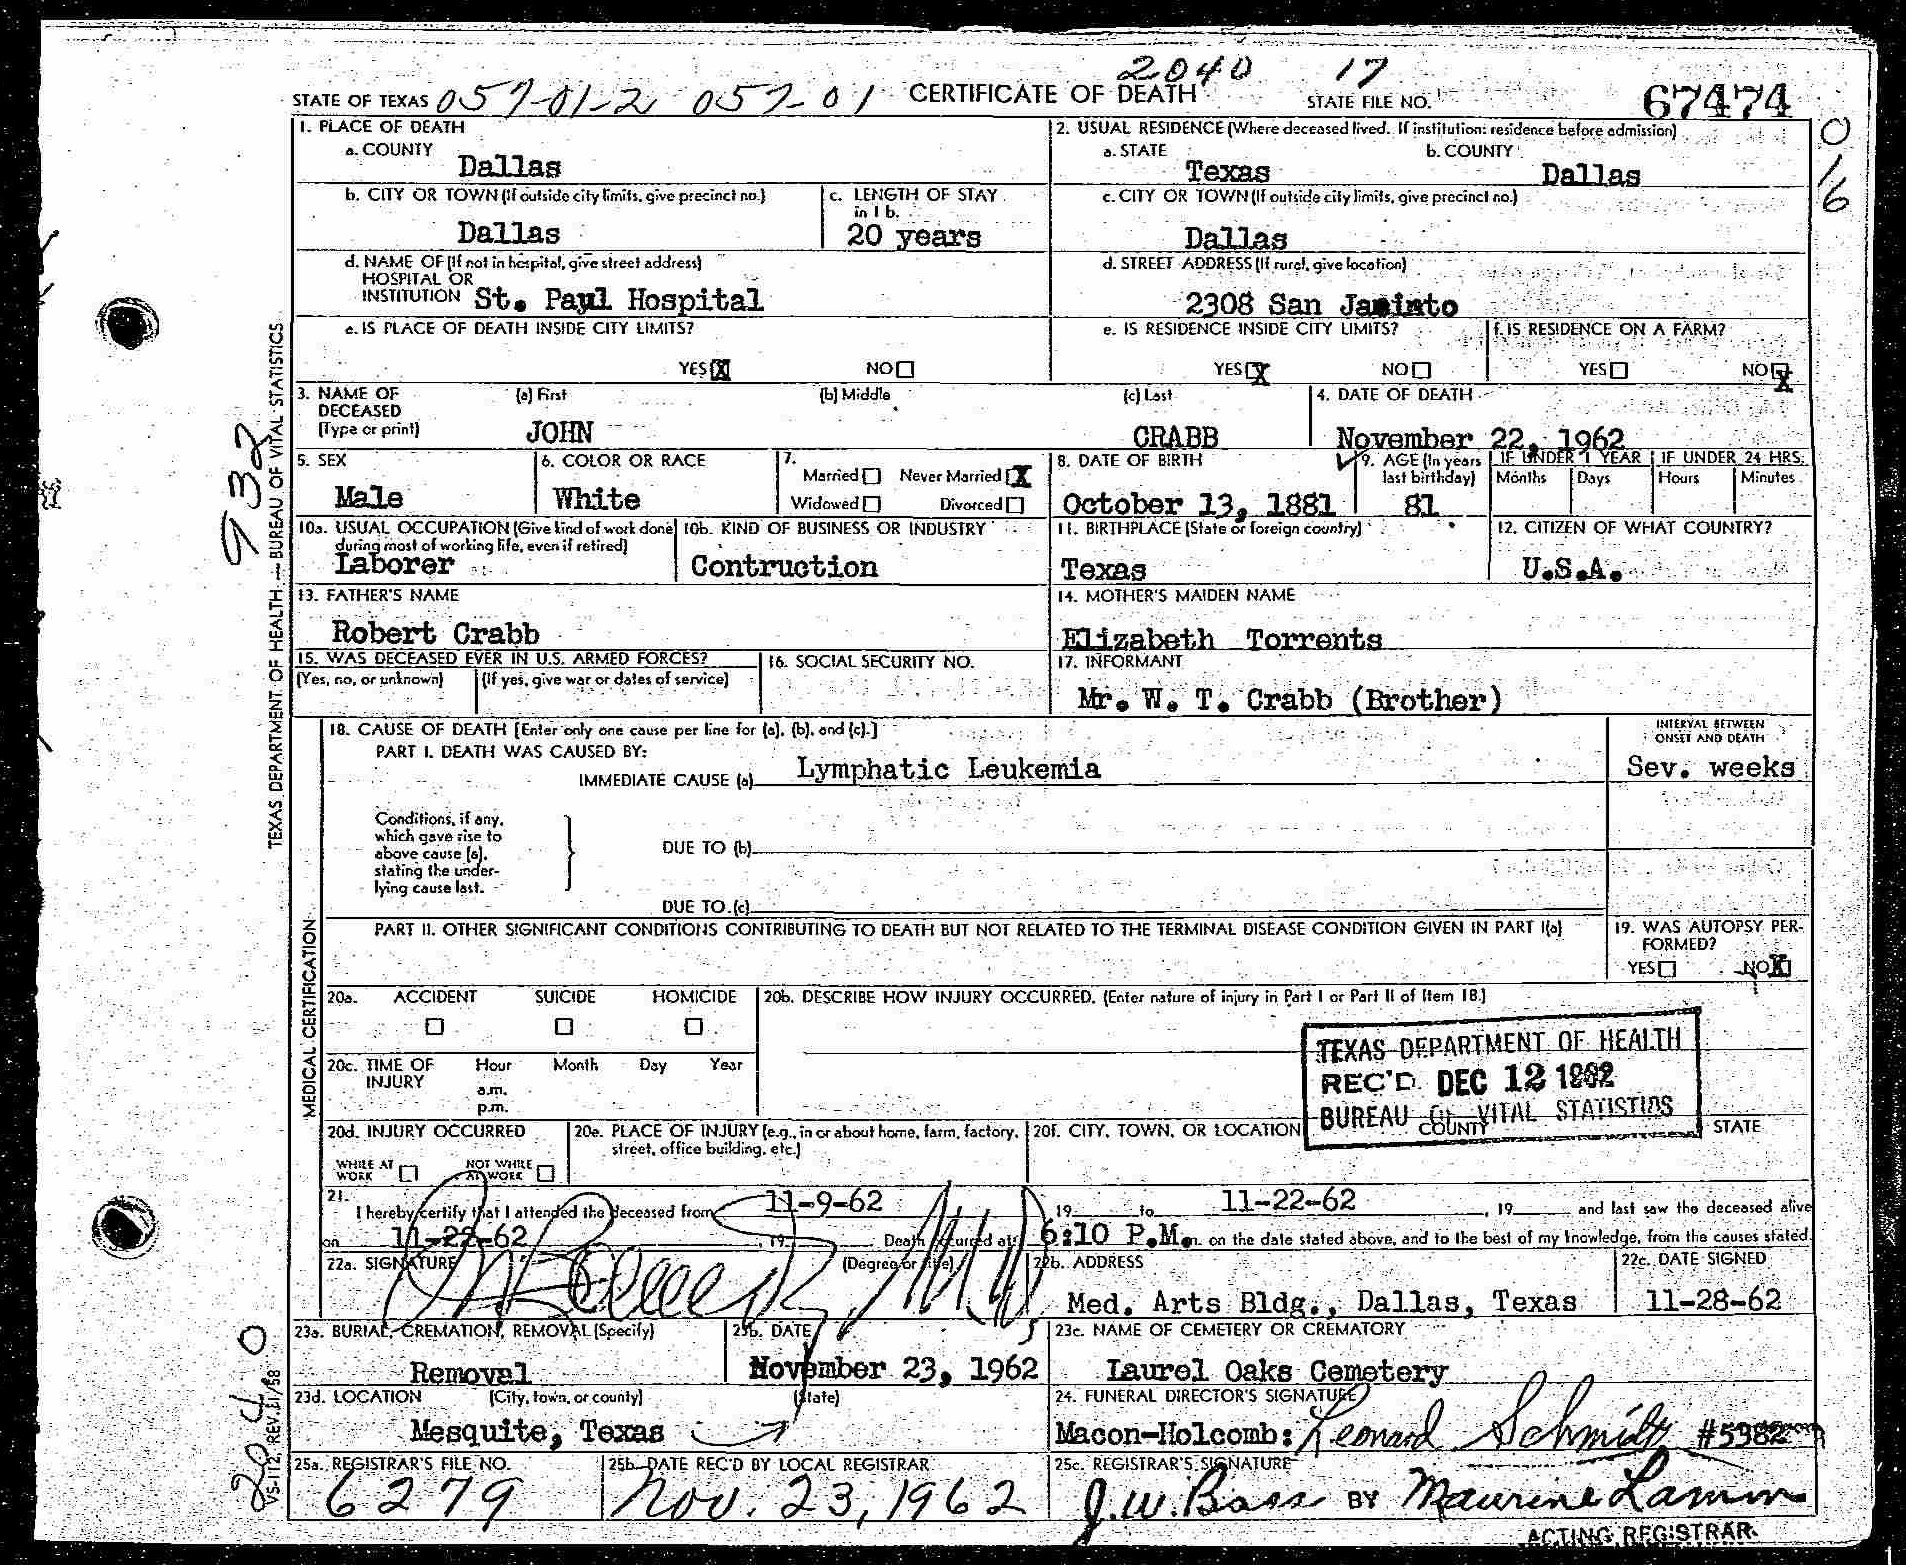 2040 17
STATE OF TEXAS 057-01-2 057-01 CERTIFICATE OF DEATH STATE FILE NO. 67474
016
1. PLACE OF DEATH
a. COUNTY
Dallas
2. USUAL RESIDENCE (Where deceased lived. If institution: residence before admission)
a. STATE b. COUNTY
Texas Dallas
b. CITY OR TOWN (If outside city limits, give precinct no.)
Dallas
c. LENGTH OF STAY
in 1 b.
20 years
c. CITY OR TOWN (If outside city limits, give precinct no.)
Dallas
d. NAME OF (If not in hospital, give street address)
HOSPITAL OR
INSTITUTION St. Paul Hospital
d. STREET ADDRESS (If rural, give location)
2308 San Jacinto
e. IS PLACE OF DEATH INSIDE CITY LIMITS?
YES X NO
e. IS RESIDENCE INSIDE CITY LIMITS?
YES X NO
f. IS RESIDENCE ON A FARM?
YES NO X
3. NAME OF
DECEASED
(Type or print)
(a) First (b) Middle (c) Last
JOHN CRABB
4. DATE OF DEATH
November 22, 1962
5. SEX
Male
6. COLOR OR RACE
White
7.
Married Never Married X
Widowed Divorced
8. DATE OF BIRTH
October 13, 1881
9. AGE (In years
last birthday)
81
IF UNDER 1 YEAR
Months Days
IF UNDER 24 HRS.
Hours Minutes
10a. USUAL OCCUPATION (Give kind of work done
during most of working life, even if retired)
Laborer
10b. KIND OF BUSINESS OR INDUSTRY
Contruction
11. BIRTHPLACE (State or foreign country)
Texas
12. CITIZEN OF WHAT COUNTRY?
U.S.A.
13. FATHER'S NAME
Robert Crabb
14. MOTHER'S MAIDEN NAME
Elizabeth Torrents
15. WAS DECEASED EVER IN U.S. ARMED FORCES?
(Yes, no, or unknown) (If yes, give war or dates of service)
16. SOCIAL SECURITY NO.
17. INFORMANT
Mr. W. T. Crabb (Brother)
18. CAUSE OF DEATH [Enter only one cause per line for (a), (b), and (c).]
PART I. DEATH WAS CAUSED BY:
IMMEDIATE CAUSE (a) Lymphatic Leukemia
INTERVAL BETWEEN
ONSET AND DEATH
Sev. weeks
Conditions, if any,
which gave rise to
above cause (a),
stating the under-
lying cause last.
DUE TO (b)
DUE TO (c)
PART II. OTHER SIGNIFICANT CONDITIONS CONTRIBUTING TO DEATH BUT NOT RELATED TO THE TERMINAL DISEASE CONDITION GIVEN IN PART I(a)
19. WAS AUTOPSY PER-
FORMED?
YES NO X
20a. ACCIDENT SUICIDE HOMICIDE
20b. DESCRIBE HOW INJURY OCCURRED. (Enter nature of injury in Part I or Part II of Item 18.)
20c. TIME OF
INJURY
Hour Month Day Year
a.m.
p.m.
TEXAS DEPARTMENT OF HEALTH
REC'D DEC 12 1962
BUREAU OF VITAL STATISTICS
20d. INJURY OCCURRED
WHILE AT
WORK
NOT WHILE
AT WORK
20e. PLACE OF INJURY (e.g., in or about home, farm, factory,
street, office building, etc.)
20f. CITY, TOWN, OR LOCATION COUNTY STATE
21.
I hereby certify that I attended the deceased from 11-9-62 19 to 11-22-62, 19 and last saw the deceased alive
on 11-22-62, 19 . Death occurred at 6:10 P.M. m. on the date stated above, and to the best of my knowledge, from the causes stated.
22a. SIGNATURE (Degree or title)
M.D.
22b. ADDRESS
Med. Arts Bldg., Dallas, Texas
22c. DATE SIGNED
11-28-62
23a. BURIAL, CREMATION, REMOVAL (Specify)
Removal
23b. DATE
November 23, 1962
23c. NAME OF CEMETERY OR CREMATORY
Laurel Oaks Cemetery
23d. LOCATION (City, town, or county) (State)
Mesquite, Texas
24. FUNERAL DIRECTOR'S SIGNATURE
Macon-Holcomb: Leonard Schmidt #5382
25a. REGISTRAR'S FILE NO.
6279
25b. DATE REC'D BY LOCAL REGISTRAR
Nov. 23, 1962
25c. REGISTRAR'S SIGNATURE
J.W. Bass BY Maurine
ACTING REGISTRAR
MEDICAL CERTIFICATION
TEXAS DEPARTMENT OF HEALTH — BUREAU OF VITAL STATISTICS
932
VS-112, REV. 1/58
2040